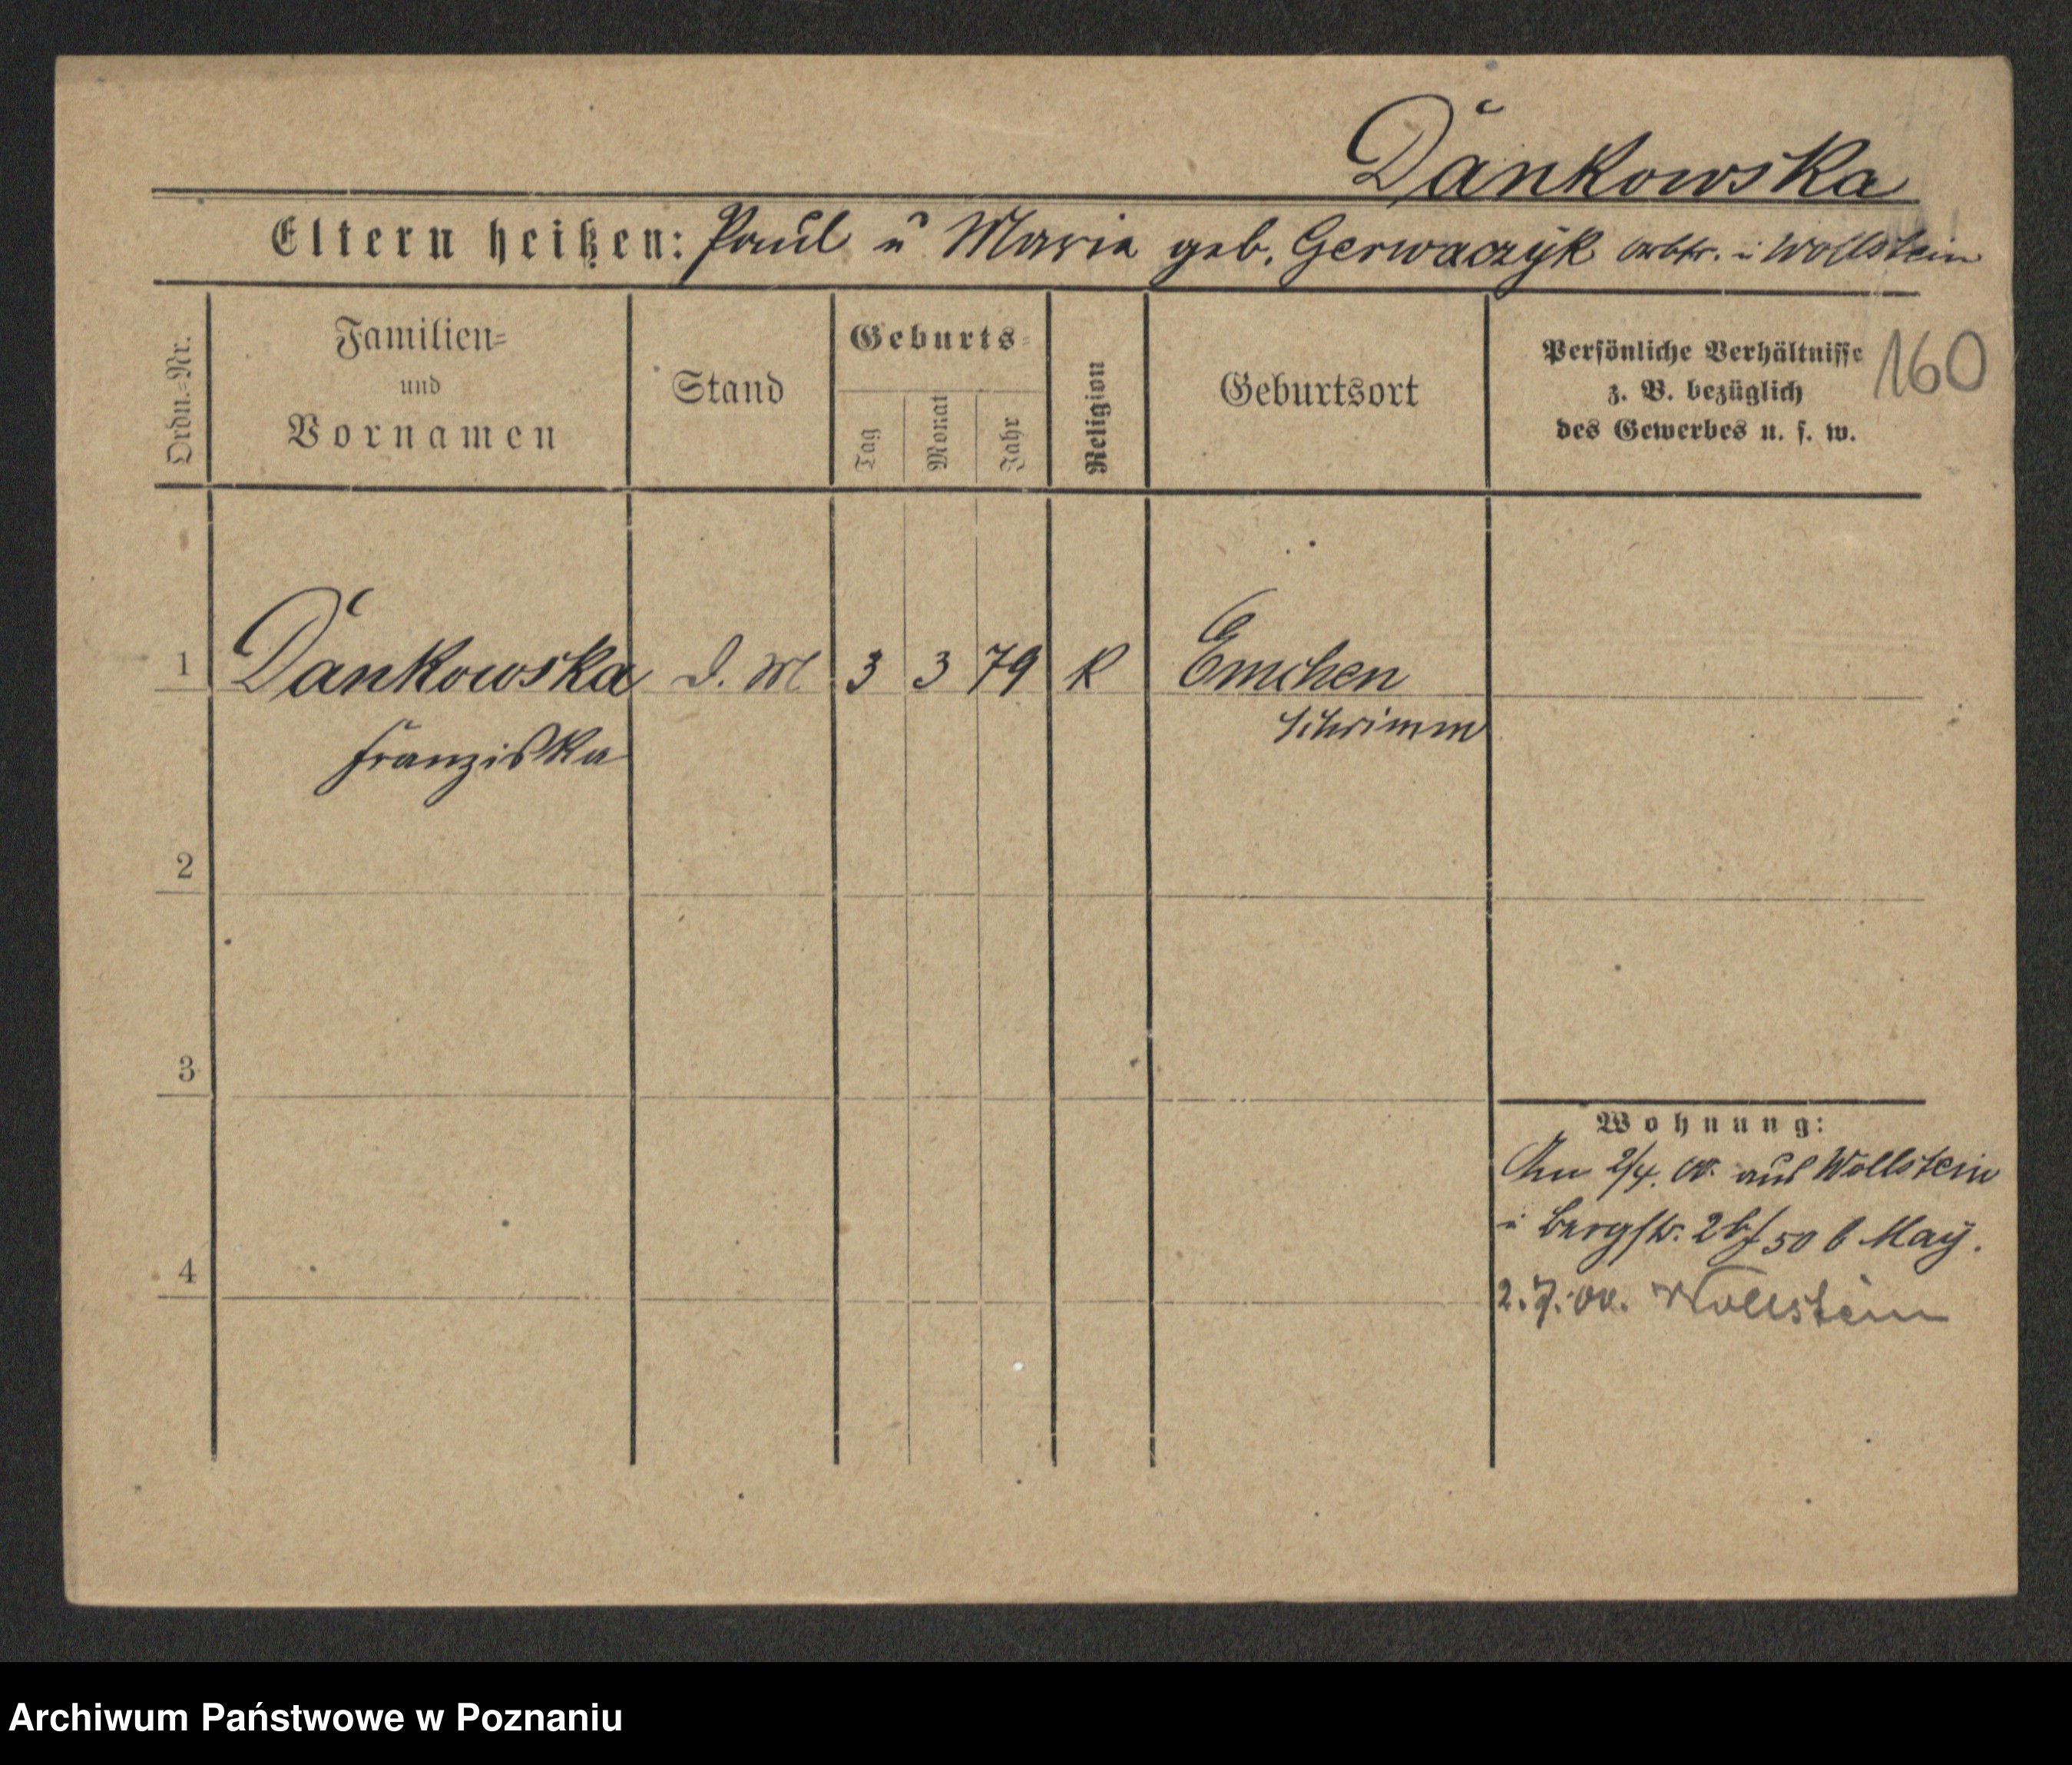 Dankowska
Eltern heißen: Paul u Maria geb. Gerwaczyk arbtr. i Wollstein
Ordn.=Nr.
Familien=
und
Vornamen
Stand
Geburts=
Tag
Monat
Jahr
Religion
Geburtsort
Persönliche Verhältnisse
z. B. bezüglich
des Gewerbes u. s. w.
160
1 Dankowska D. M 3 3 79 K Emchen
Franziska Schrimm
2
3
4
Wohnung:
2/4. 00. aus Wollstein
i Bergstr. 50 b May.
2.7.00. Wollstein
Archiwum Państwowe w Poznaniu